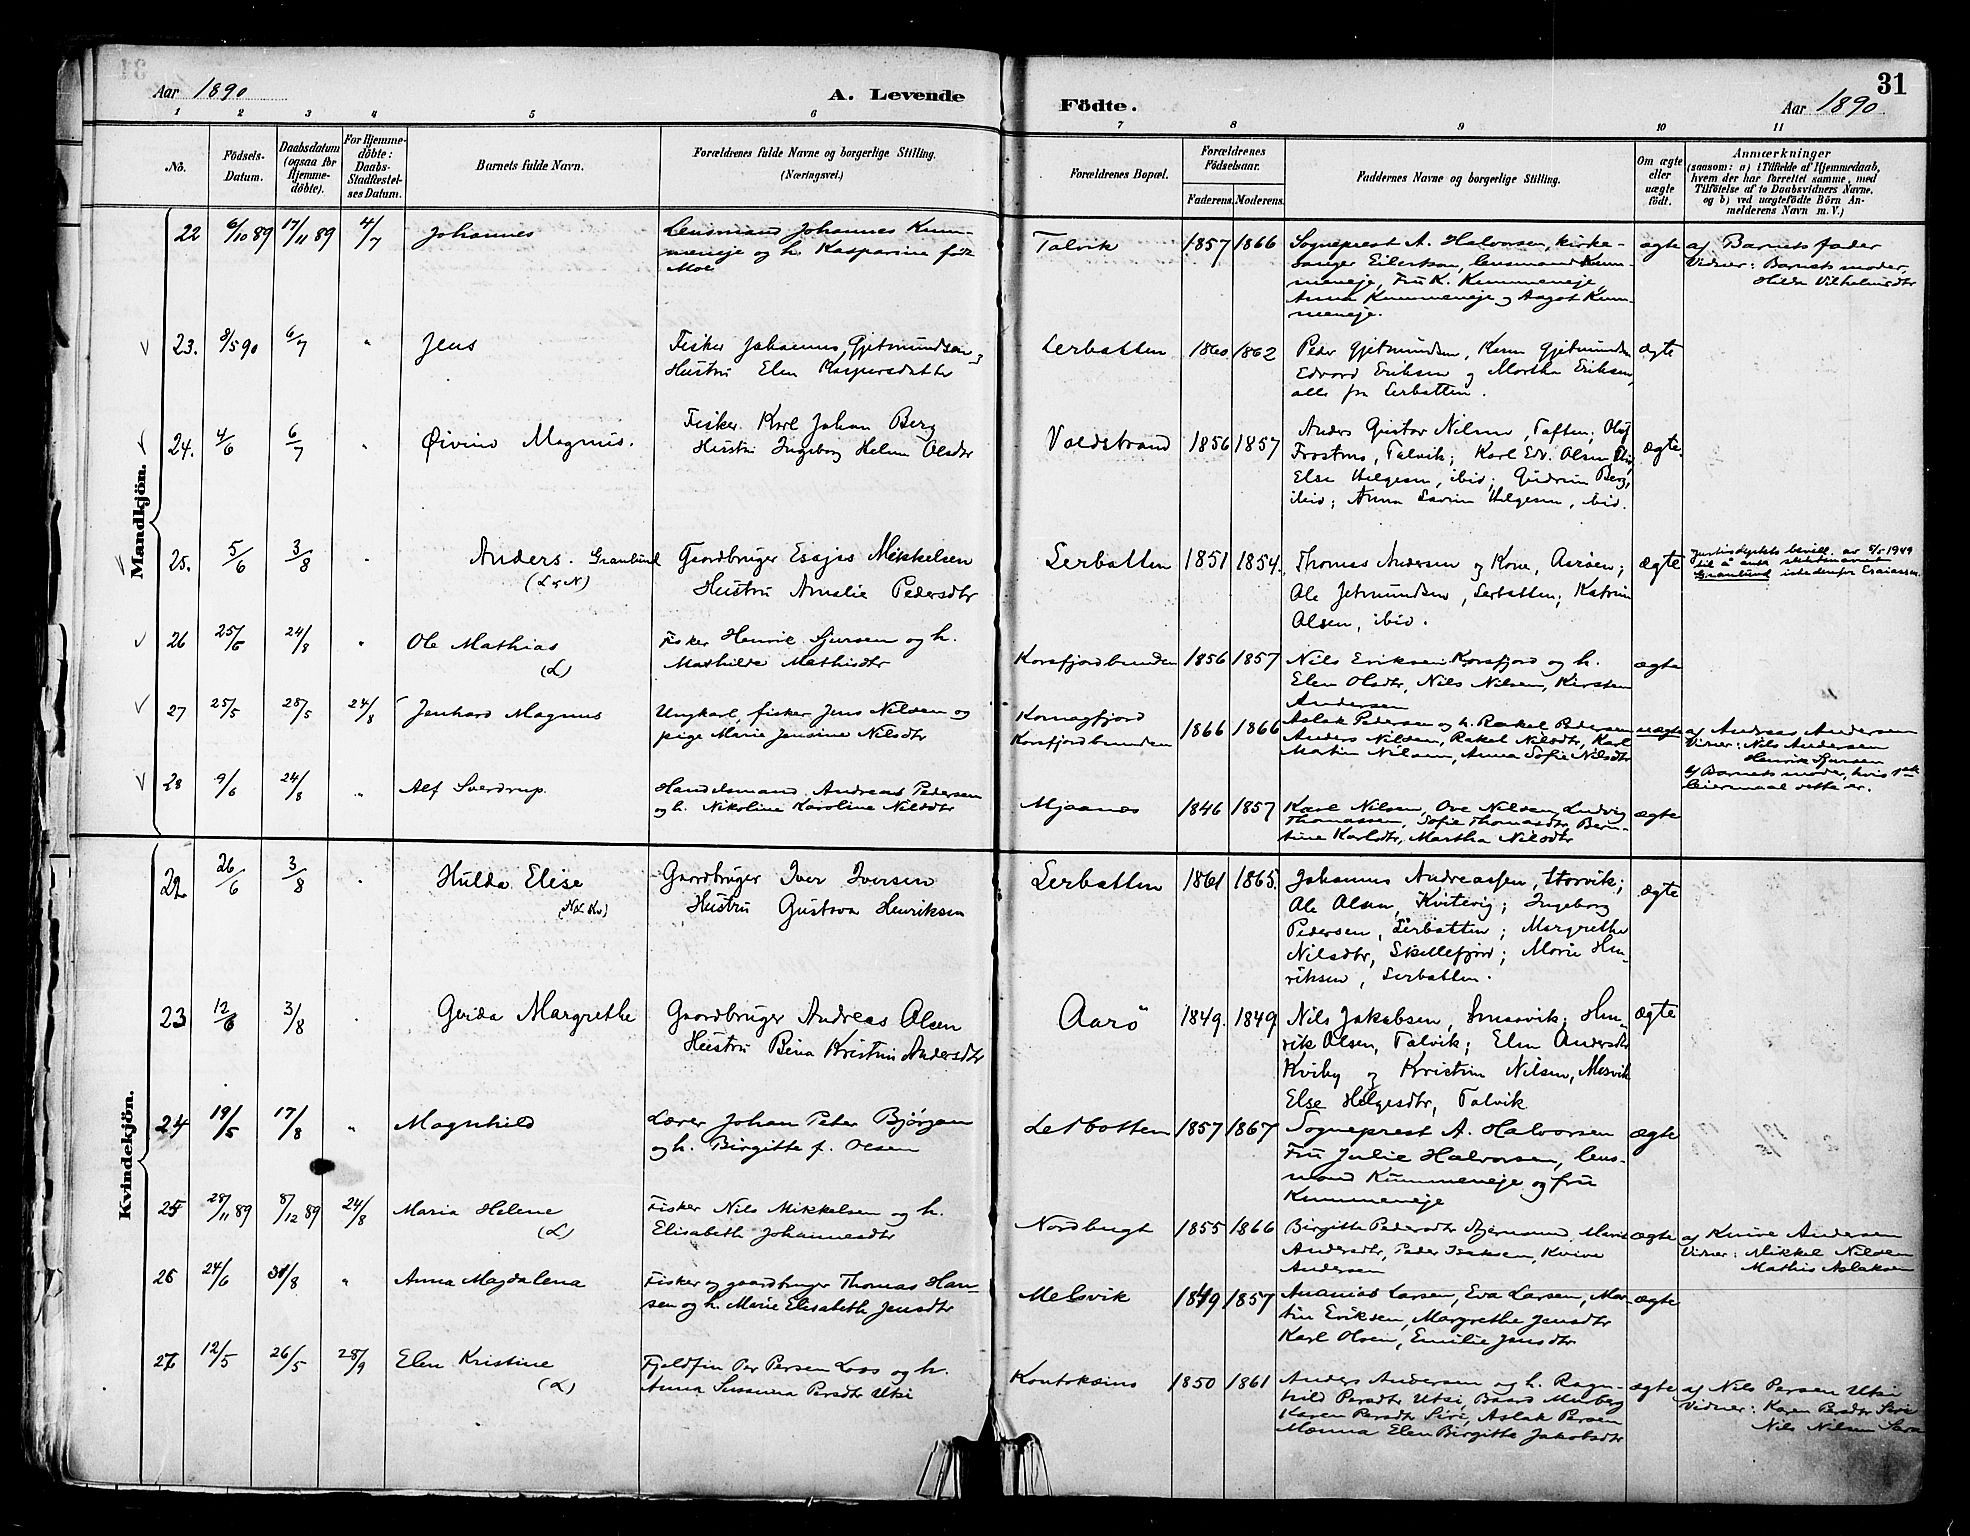 31
Aar 1890
A. Levende
Födte.
Aar 1890
1 2 3 4 5 6 7 8 9 10 11
No.
Födsels-Datum.
Daabsdatum (ogsaa for Hjemme-döbte).
For Hjemme-döbte: Daabs-Stadfæstel-ses Datum.
Barnets fulde Navn.
Forældrenes fulde Navne og borgerlige Stilling. (Næringsvei.)
Forældrenes Bopæl.
Forældrenes Födselsaar.
Faderens. Moderens.
Faddernes Navne og borgerlige Stilling.
Om ægte eller uægte födt.
Anmærkninger
(saasom: a) i Tilfælde af Hjemmedaab, hvem der har forrettet samme, med Tilföielse af to Daabsvidners Navne, og b) ved uægtefödte Börn An-melderens Navn m. V.)
Mandkjön.
22 6/10 89 17/11 89 4/7 Johannes
Lensmand Johannes Kum-
meneje og h. Kasparine født
Moe
Talvik 1857 1866
Sogneprest A. Halvorsen, kirke-
sanger Eilertsen, lensmand Kum-
meneje, Fru K. Kummeneje,
Anna Kummeneje og Aagot Kum-
meneje.
ægte
af Barnets fader
Vidner: Barnets moder,
Hilda Vilhelmsdtr
23. 8/5 90 6/7 " Jens
Fisker Johannes Gjetmundsen,
Hustru Elen Kaspersdatter
Lerbotten 1860 1862
Peder Gjetmundsen, Karen Gjetmundsen
Edvard Eriksen og Martha Eriksen,
alle fra Lerbotten.
ægte
24. 4/6 6/7 " Øivind Magnus.
Fisker Karl Johan Berg
Hustru Ingeborg Helene Olsdtr
Voldstrand 1856 1857
Anders Gustav Nilsen, Toften; Olof
Frostmo, Talvik; Karl Edv. Olsen, ibid;
Else Helgesen, ibid; Gudrun Berg,
ibid; Anna Helgesen, ibid.
ægte.
25. 5/6 3/8 " Anders. Granlund
(L & N)
Gaardbruger Esajas Mikkelsen
Hustru Amalie Pedersdtr
Lerbotten 1851 1854.
Thomas Andersen og Kone, Aarøen;
Ole Jetmundsen, Lerbotten; Katrine
Olsen, ibid.
ægte
Justisdeptets bevill. av 5/5 1949
til å anta slektsnavnet
Granlund istedenfor Esaiassen.
26 25/6 24/8 " Ole Mathias
(L)
Fisker Henrik Sjursen og h.
Mathilde Mathisdtr
Korsfjordbunden 1856 1857
Nils Eriksen Korsfjord og h.
Elen Olsdtr, Nils Nilsen, Kirsten
Andersen
ægte
27 25/5 28/5 24/8 Jenhard Magnus
Ungkarl, fisker Jens Nilsen og
pige Marie Jensine Nilsdtr
Komagfjord
Korsfjordbunden 1866 1866
Aslak Pedersen og h. Rakel Pedersen
Anders Nilsen, Rakel Nilsdtr, Karl
Martin Nilsen, Anna Sofie Nilsdtr
uægte
af Andreas Andersen
Vidner: Nils Andersen
Henrik Sjursen
Af Barnets moder, hvis 1ste
leiermaal dette er.
28 9/6 24/8 " Alf Sverdrup.
Handelsmand Andreas Pedersen
og h. Nikoline Karoline Nilsdtr
Mjaanes 1846 1857
Karl Nilsen, Ove Nilsen, Ludvig
Thomassen, Sofie Thomasdtr, Bern-
tine Karlsdtr, Martha Nilsdtr
ægte
Kvindekjön.
22 26/6 3/8 " Hulda Elise
Gaardbruger Iver Iversen
Hustru Gustava Henriksen
Lerbotten 1861 1865.
Johannes Andreassen, Storvik;
Ole Olsen, Kvitevig; Ingeborg
Pedersen, Lerbotten; Margrethe
Nilsdtr, Skillefjord; Marie Hen-
riksen, Lerbotten.
ægte
23 12/6 3/8 " Gerda Margrethe
Gaardbruger Andreas Olsen
Hustru Bina Kristine Andersdtr
Aarö 1849. 1849
Nils Jakobsen, Smaavik; Hen-
rik Olsen, Talvik; Elen Andersdtr
Kviby og Kristine Nilsen, Mesvik
Else Helgesdtr, Talvik
ægte
24 19/5 17/8 " Magnhild
Lærer Johan Peter Bjørgan
og h. Birgitte f. Olsen
Lerbotten 1857 1867
Sogneprest A. Halvorsen
Fru Julie Halvorsen, lens-
mand Kummeneje og fru
Kummeneje
ægte
25 28/11 89 8/12 89 24/8 Maria Helene
(L)
Fisker Nils Mikkelsen og h.
Elisabeth Johannesdtr
Nordbugt 1855 1866
Birgitte Pedersdtr, Marit
Andersdtr, Peder Isaksen, Kvive
Andersen
ægte
af Kvive Andersen
Vidner: Mikkel Nilsen
Mathis Aslaksen
26 24/6 31/8 " Anna Magdalena
Fisker og gaardbruger Thomas Han-
sen og h. Marie Elisabeth Jensdtr
Melsvik 1849 1857
Ananias Larsen, Eva Larsen, Mar-
tin Eriksen, Margrethe Jensdtr
Karl Olsen, Emilie Jensdtr
ægte
27 12/5 26/5 28/9 Elen Kristine
(L)
Fjeldfin Per Persen Loos og h.
Anna Susanna Persdtr Utsi
Koutokeino 1850 1861
Anders Andersen og h. Ragn-
hild Persdtr Utsi, Baard Murberg
Karen Persdtr Siri, Aslak Persen
Monna Elen Birgitte Jakobsdtr
ægte
af Nils Persen Utsi
Vidner: Karen Persdtr Siri
Nils Nilsen Sara